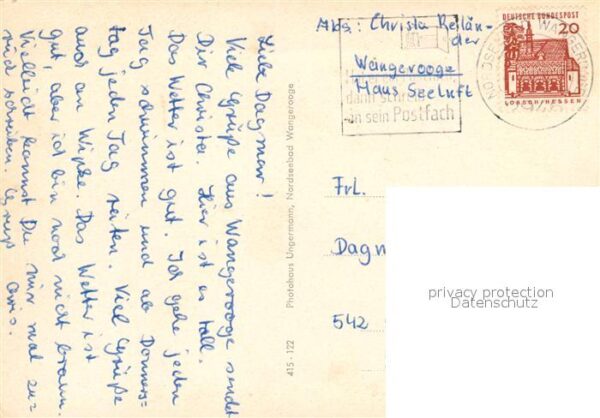 Liebe Dagmar!
Viele Grüße aus Wangerooge sendet
Dir Christa. Hier ist es toll.
Das Wetter ist gut. Ich gehe jeden
Tag schwimmen und ab Donners=
tag jeden Tag reiten. Viel Grüße
auch an Wipke. Das Wetter ist
gut, aber ich bin noch nicht braun.
Vielleicht kannst Du mir mal zu=
rück schreiben.
415 - 122 Photohaus Ungermann, Nordseebad Wangerooge
Abs: Christa Reilän-
der
Wangerooge
Haus Seeluft
dann schreibe
an sein Postfach
DEUTSCHE BUNDESPOST
20
LORSCH/HESSEN
Frl.
Dagm
542
privacy protection
Datenschutz